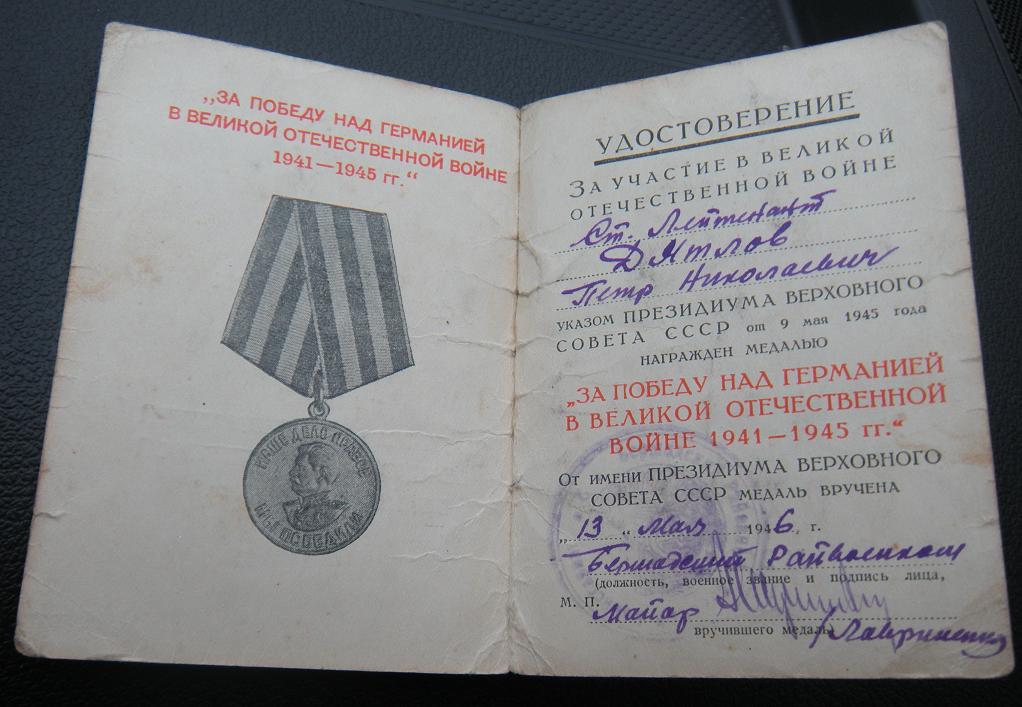 „ЗА ПОБЕДУ НАД ГЕРМАНИЕЙ
В ВЕЛИКОЙ ОТЕЧЕСТВЕННОЙ ВОЙНЕ
1941—1945 гг.“
НАШЕ ДЕЛО ПРАВОЕ
МЫ ПОБЕДИЛИ
УДОСТОВЕРЕНИЕ
ЗА УЧАСТИЕ В ВЕЛИКОЙ
ОТЕЧЕСТВЕННОЙ ВОЙНЕ
Ст. Лейтенант
Дятлов
Петр Николаевич
УКАЗОМ ПРЕЗИДИУМА ВЕРХОВНОГО
СОВЕТА СССР от 9 мая 1945 года
НАГРАЖДЕН МЕДАЛЬЮ
„ЗА ПОБЕДУ НАД ГЕРМАНИЕЙ
В ВЕЛИКОЙ ОТЕЧЕСТВЕННОЙ
ВОЙНЕ 1941—1945 гг.“
От имени ПРЕЗИДИУМА ВЕРХОВНОГО
СОВЕТА СССР МЕДАЛЬ ВРУЧЕНА
„13“ мая 1946 г.
Райвоенком
(должность, военное звание и подпись лица,
М. П.
Майор
вручившего медаль)
/Лавриненко/